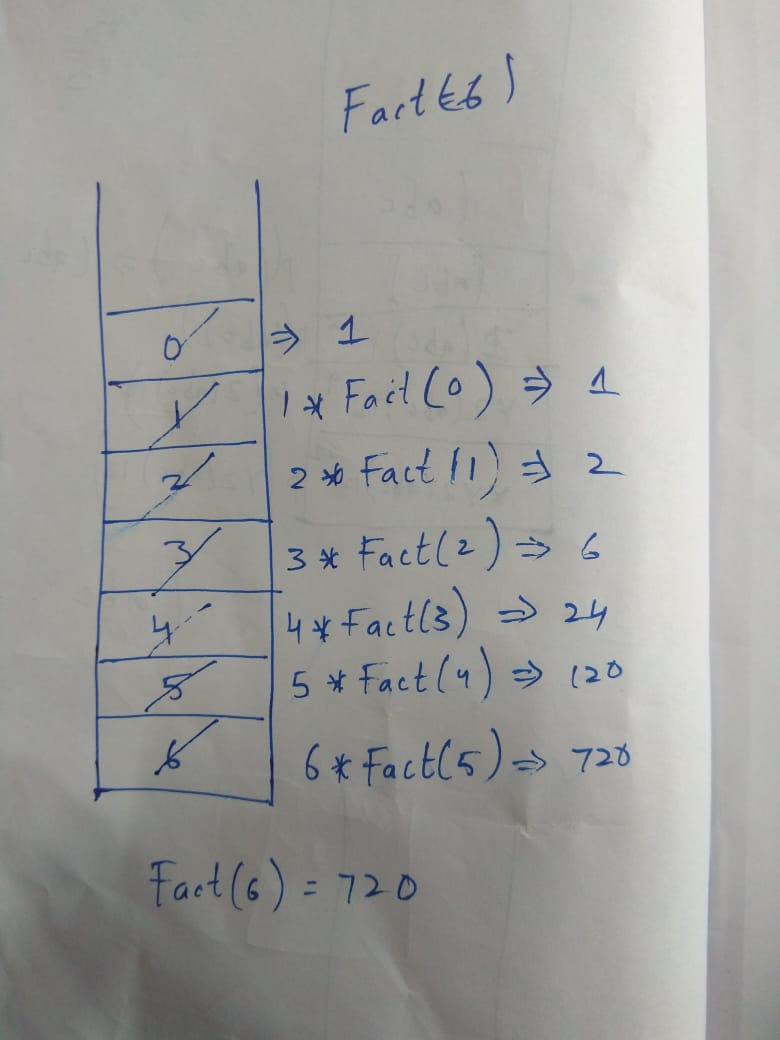 Fact(6)
0 ⇒ 1
1 1 * Fact(0) ⇒ 1
2 2 * Fact(1) ⇒ 2
3 3 * Fact(2) ⇒ 6
4 4 * Fact(3) ⇒ 24
5 5 * Fact(4) ⇒ 120
6 6 * Fact(5) ⇒ 720
Fact(6) = 720